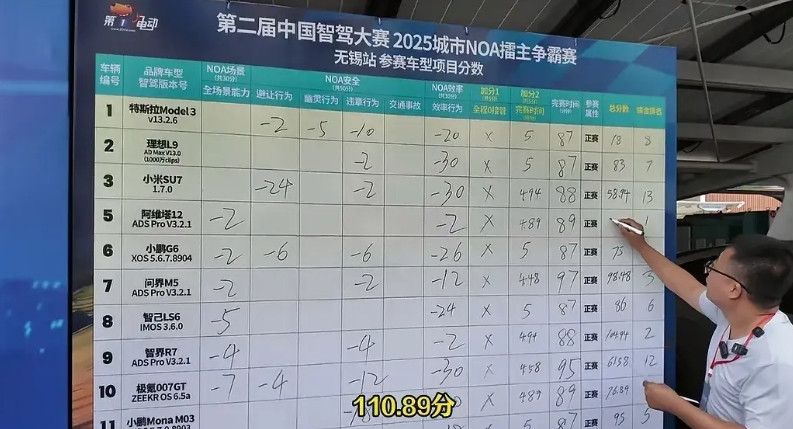 第一电动
第二届中国智驾大赛 2025城市NOA擂主争霸赛
无锡站 参赛车型项目分数
车辆编号 品牌车型 智驾版本号 NOA场景 全场景能力 NOA安全 避让行为 幽灵行为 违章行为 交通事故 NOA效率 效率行为 加分1 全程0接管 加分2 完赛时间 完赛时间 参赛属性 总分数
1 特斯拉Model 3 v13.2.6 -2 -5 -10 -20 × 5 87 正赛 8
2 理想L9 AD Max V13.0 (1000万clips) -2 -30 × 5 87 正赛 83 7
3 小米SU7 1.7.0 -24 -2 -30 × 4.94 88 正赛 58.94 13
5 阿维塔12 ADS Pro V3.2.1 -2 -2 × 4.89 89 正赛 1
6 小鹏G6 XOS 5.6.7.8904 -2 -6 -6 -26 × 5 87 正赛 75
7 问界M5 ADS Pro V3.2.1 -2 -2 -12 × 4.48 97 正赛 98.48 3
8 智己LS6 IMOS 3.6.0 -5 -24 × 5 87 正赛 86 6
9 智界R7 ADS Pro V3.2.1 -4 -4 -2 × 4.94 88 正赛 104.94 2
10 极氪007GT ZEEKR OS 6.5a -7 -4 -12 -30 × 4.58 95 正赛 61.58 12
11 小鹏Mona M03 × 4.89 89 正赛 76.89
5 87 正赛 95 5
110.89分